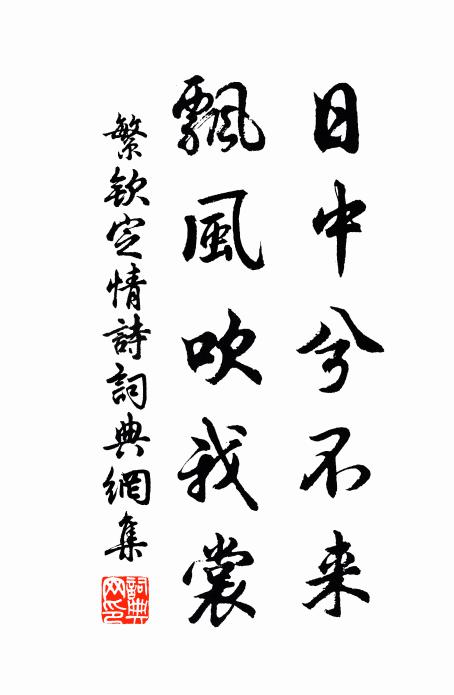 日中兮不来
飄風吹我裳
繁欽定情詩詞典網集
詞典網印